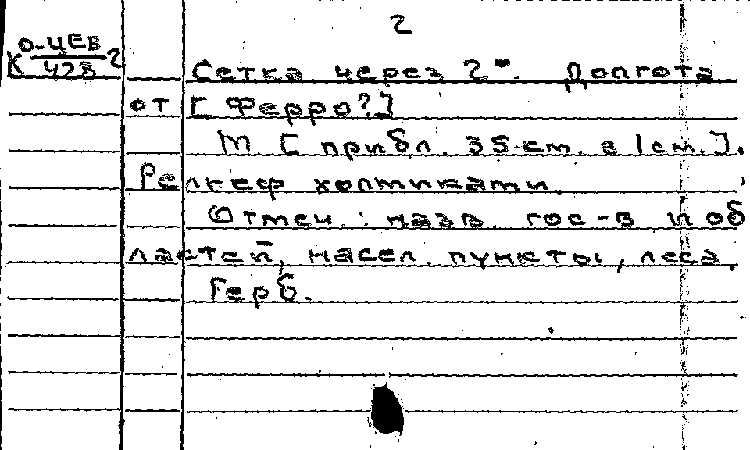 2
К О-ЦЕВ 2
428
Сетка через 2°. Долгота
от [Ферро?]
М [прибл. 35 ст. в 1 см.].
Рельеф холмиками.
Отмеч.: назв. гос-в и об
ластей, насел. пункты, леса.
Герб.